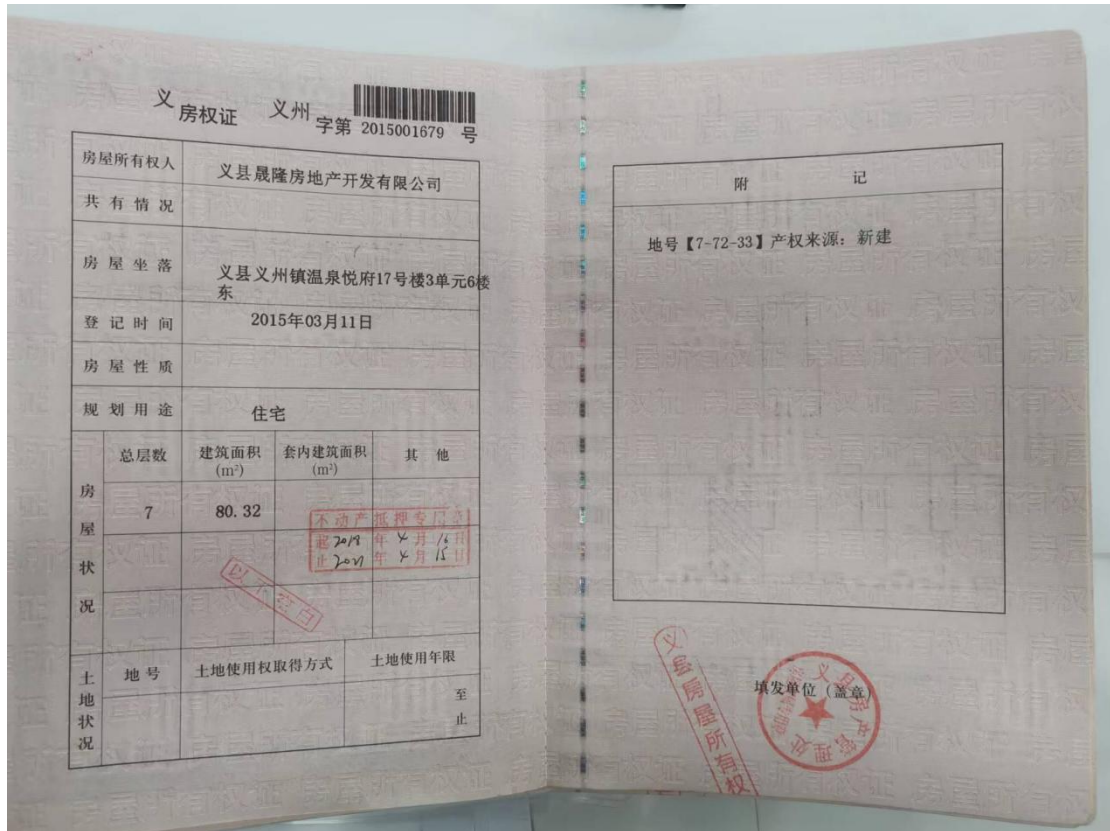 义 房权证 义州 字第 2015001679 号
房屋所有权人 义县晟隆房地产开发有限公司
共有情况
房屋坐落 义县义州镇温泉悦府17号楼3单元6楼
东
登记时间 2015年03月11日
房屋性质
规划用途 住宅
房屋状况
总层数 建筑面积(m²) 套内建筑面积(m²) 其他
7 80.32
不动产抵押专用章
起2018年4月16日
止2021年4月15日
以下空白
土地状况
地号 土地使用权取得方式 土地使用年限
至
止
附 记
地号【7-72-33】产权来源: 新建
填发单位(盖章)
义县房产管理处
义县房屋所有权